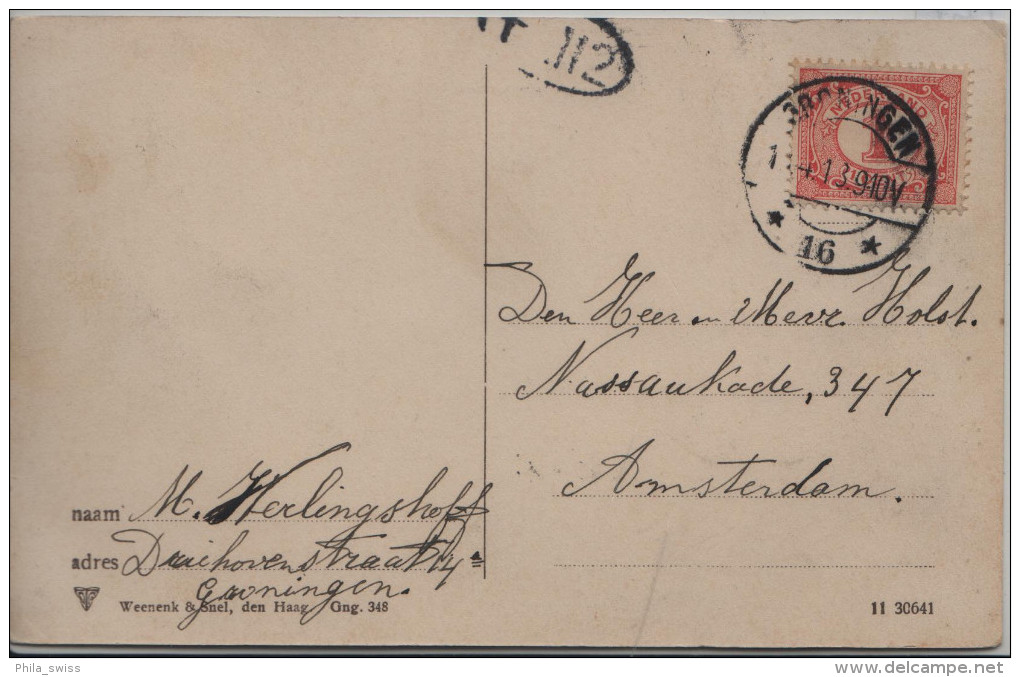 112
GRONINGEN
NEDERLAND
1
9-10V
16
Den Heer en Mevr. Holst.
Nassaukade, 347
Amsterdam.
naam M. Herlingshoff
adres
Groningen.
Weenenk & Snel, den Haag Gng. 348
11 30641
Phila_swiss
www.delcampe.net